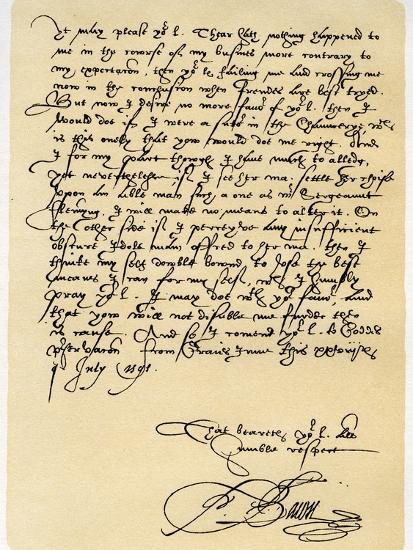 It may please yor L. Thear hath nothing happened to
me in the cowrse of my busines more contrary to
my expectacon, then yor Ls failing me and crossing me
now in the conclusion when frendes are best tryed.
But now I desire no more favor of yor L. then I
would doe if I were a sutor in the Chauncerye wch
is this onely that yow would doe me right. And
I for my part though I have much to alledg,
yet nevertheless if I see her ma. settle her choise
vppon an able man such a one as mr Sergeaunt
Flemyng I will make no meanes to alter it. On
the other side if I perceyve any insufficient
obscure Idole man offred to her ma. then I
thinke my self dowble bownd to vse the best
meanes I can for my self, wch I humbly
pray yor L. I may doe wth yor favor, and
that yow will not disable me furder then
is cause. And so I comend yor L. to Goddes
preservacon From Graies Inne this
July 1595.
That beareth yor L. all
humble respect
Fr. Bacon